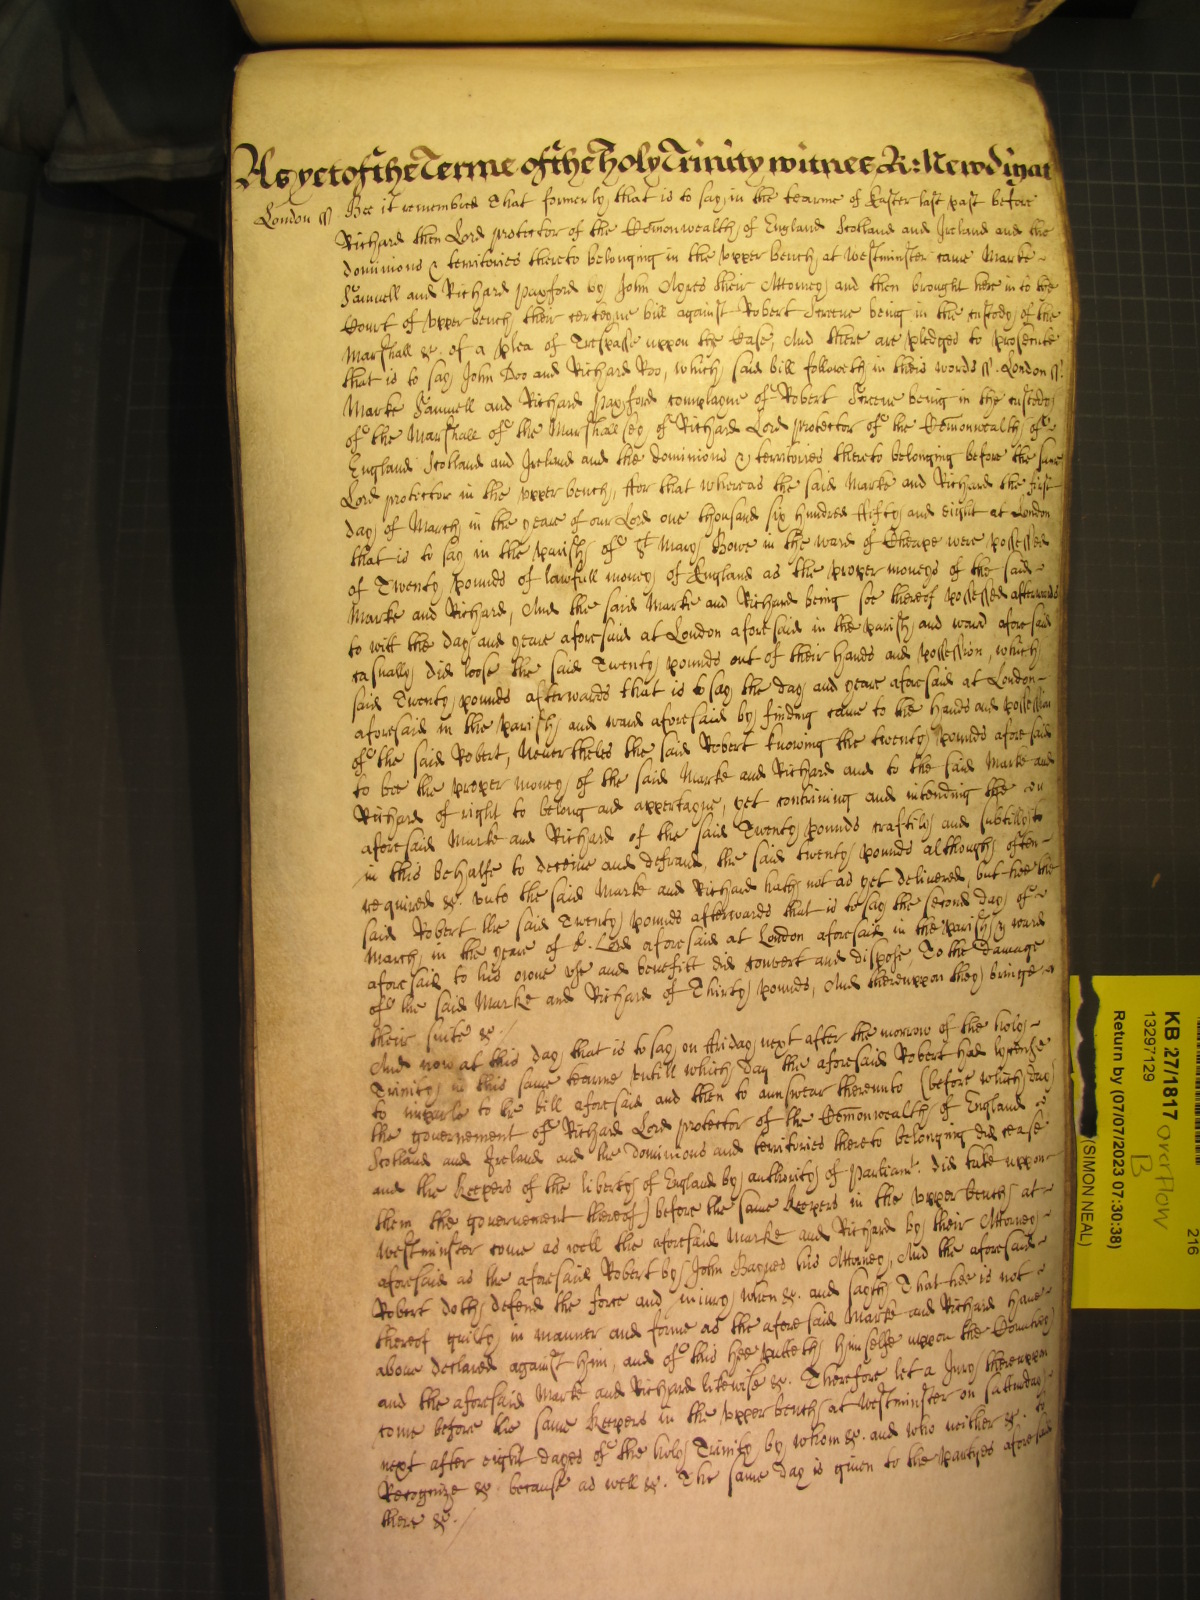 As yet of the Terme of the holy Trinity witnes R: Newdigat
London ss. Bee it remembred That formerly that is to say in the tearme of Easter last past before
Richard then Lord protector of the Comonwealth of England Scotland and Ireland and the
dominions & territories thereto belonging in the upper bench at Westminster came Marke
Samuell and Richard Payford by John Ayres their Attorney and then brought here in to the
Court of upper bench their certeyne bill against Robert Greene being in the custody of the
Marshall &c. of a plea of Trespasse uppon the Case, And there are pledges to prosecute
that is to say John Doo and Richard Roo, which said bill followeth in theis words ss. London ss.
Marke Samuell and Richard Payford complayne of Robert Greene being in the custody
of the Marshall of the Marshallsey of Richard Lord protector of the Comonwealth of
England Scotland and Ireland and the dominions & territories thereto belonging before the same
Lord protector in the upper bench, ffor that whereas the said Marke and Richard the first
day of March in the yeare of our Lord one thousand six hundred ffifty and eight at London
that is to say in the parish of St Mary Bowe in the ward of Cheape were possessed
of Twenty pounds of lawfull money of England as the proper moneys of the said
Marke and Richard, And the said Marke and Richard being soe thereof possessed afterwards
to witt the day and yeare aforesaid at London aforesaid in the parish and ward aforesaid
casually did loose the said Twenty pounds out of their hands and possession, which
said Twenty pounds afterwards that is to say the day and yeare aforesaid at London
aforesaid in the parish and ward aforesaid by finding came to the hands and possession
of the said Robert, Nevertheles the said Robert knowing the twenty pounds aforesaid
to bee the proper money of the said Marke and Richard and to the said Marke and
Richard of right to belong and appertayne, yet contriving and intending the
aforesaid Marke and Richard of the said Twenty pounds craftily and subtilly
in this behalfe to deceive and defraud, the said twenty pounds although often
required &c. unto the said Marke and Richard hath not as yet delivered, but hee the
said Robert the said Twenty pounds afterwards that is to say the second day of
March in the yeare of o.r Lord aforesaid at London aforesaid in the parish & ward
aforesaid to his owne use and benefitt did convert and dispose, To the damage
of the said Marke and Richard of Thirty pounds, And thereuppon they bringe
their suite &c.
And now at this day that is to say on ffriday next after the morrow of the holy
Trinity in this same tearme untill which day the aforesaid Robert had lycense
to imparle to the bill aforesaid and then to aunswear thereunto (before which day
the governement of Richard Lord protector of the Comonwealth of England
Scotland and Ireland and the dominions and territories thereto belonging did cease
and the keepers of the liberty of England by authority of Parliamt. did take uppon
them the governement thereof) before the same keepers in the upper bench at
Westminster come as well the aforesaid Marke and Richard by their Attorney
aforesaid as the aforesaid Robert by John Baynes his Attorney, And the aforesaid
Robert doth defend the force and iniury when &c. and sayth That hee is not
thereof guilty in manner and forme as the aforesaid Marke and Richard have
above declared against him, and of this hee putteth himselfe uppon the Countrey
and the aforesaid Marke and Richard likewise &c. Therefore let a Jury thereuppon
come before the same keepers in the upper bench at Westminster on Satturday
next after eight dayes of the holy Trinity by whom &c. and who neither &c. to
Recognize &c. because as well &c. The same day is given to the partyes aforesaid
there &c.
216
KB 27/1817 overflow
B
13297129
Return by (07/07/2023 07:30:38)
(SIMON NEAL)